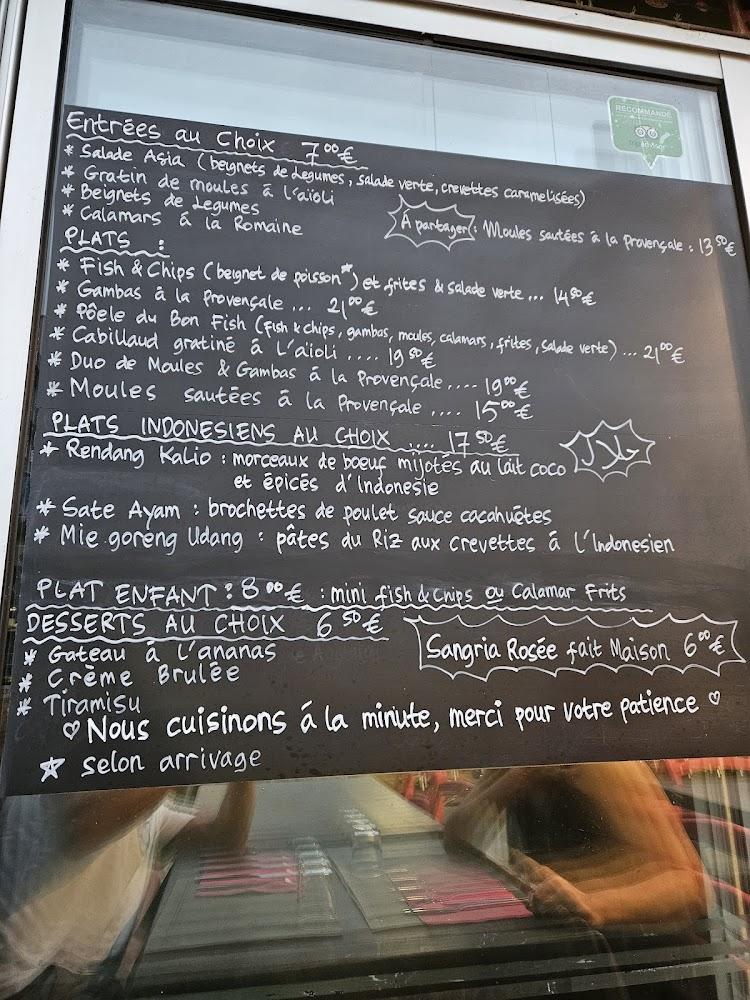 RECOMMANDÉ
Entrées au Choix 7⁰⁰€
* Salade Asia (beignets de Legumes, salade verte, crevettes caramelisées)
* Gratin de moules á l'aïoli
* Beignets de Legumes
* Calamars á la Romaine
À partager : Moules sautées á la provençale : 13⁵⁰€
PLATS :
* Fish & Chips (beignet de poisson*) et frites & salade verte ... 14⁵⁰€
* Gambas á la provençale ... 21⁰⁰€
* Pôele du Bon Fish (fish & chips, gambas, moules, calamars, frites, salade verte) ... 21⁰⁰€
* Cabillaud gratiné á L'aïoli .... 19⁵⁰€
* Duo de Moules & Gambas á la Provençale .... 19⁰⁰€
* Moules sautées á la Provençale .... 15⁰⁰€
PLATS INDONESIENS AU CHOIX .... 17⁵⁰€
* Rendang Kalio : morceaux de boeuf mijotés au lait coco
et épicés d'Indonesie
حلال
* Sate Ayam : brochettes de poulet sauce cacahuétes
* Mie goreng Udang : pâtes du Riz aux crevettes á l'Indonesien
PLAT ENFANT : 8⁰⁰€ : mini fish & chips ou Calamar Frits
DESSERTS AU CHOIX 6⁵⁰€
* Gateau á L'ananas
* Crème Brulée
* Tiramisu
Sangria Rosée fait Maison 6⁰⁰€
♡ Nous cuisinons á la minute, merci pour votre patience ♡
☆ selon arrivage